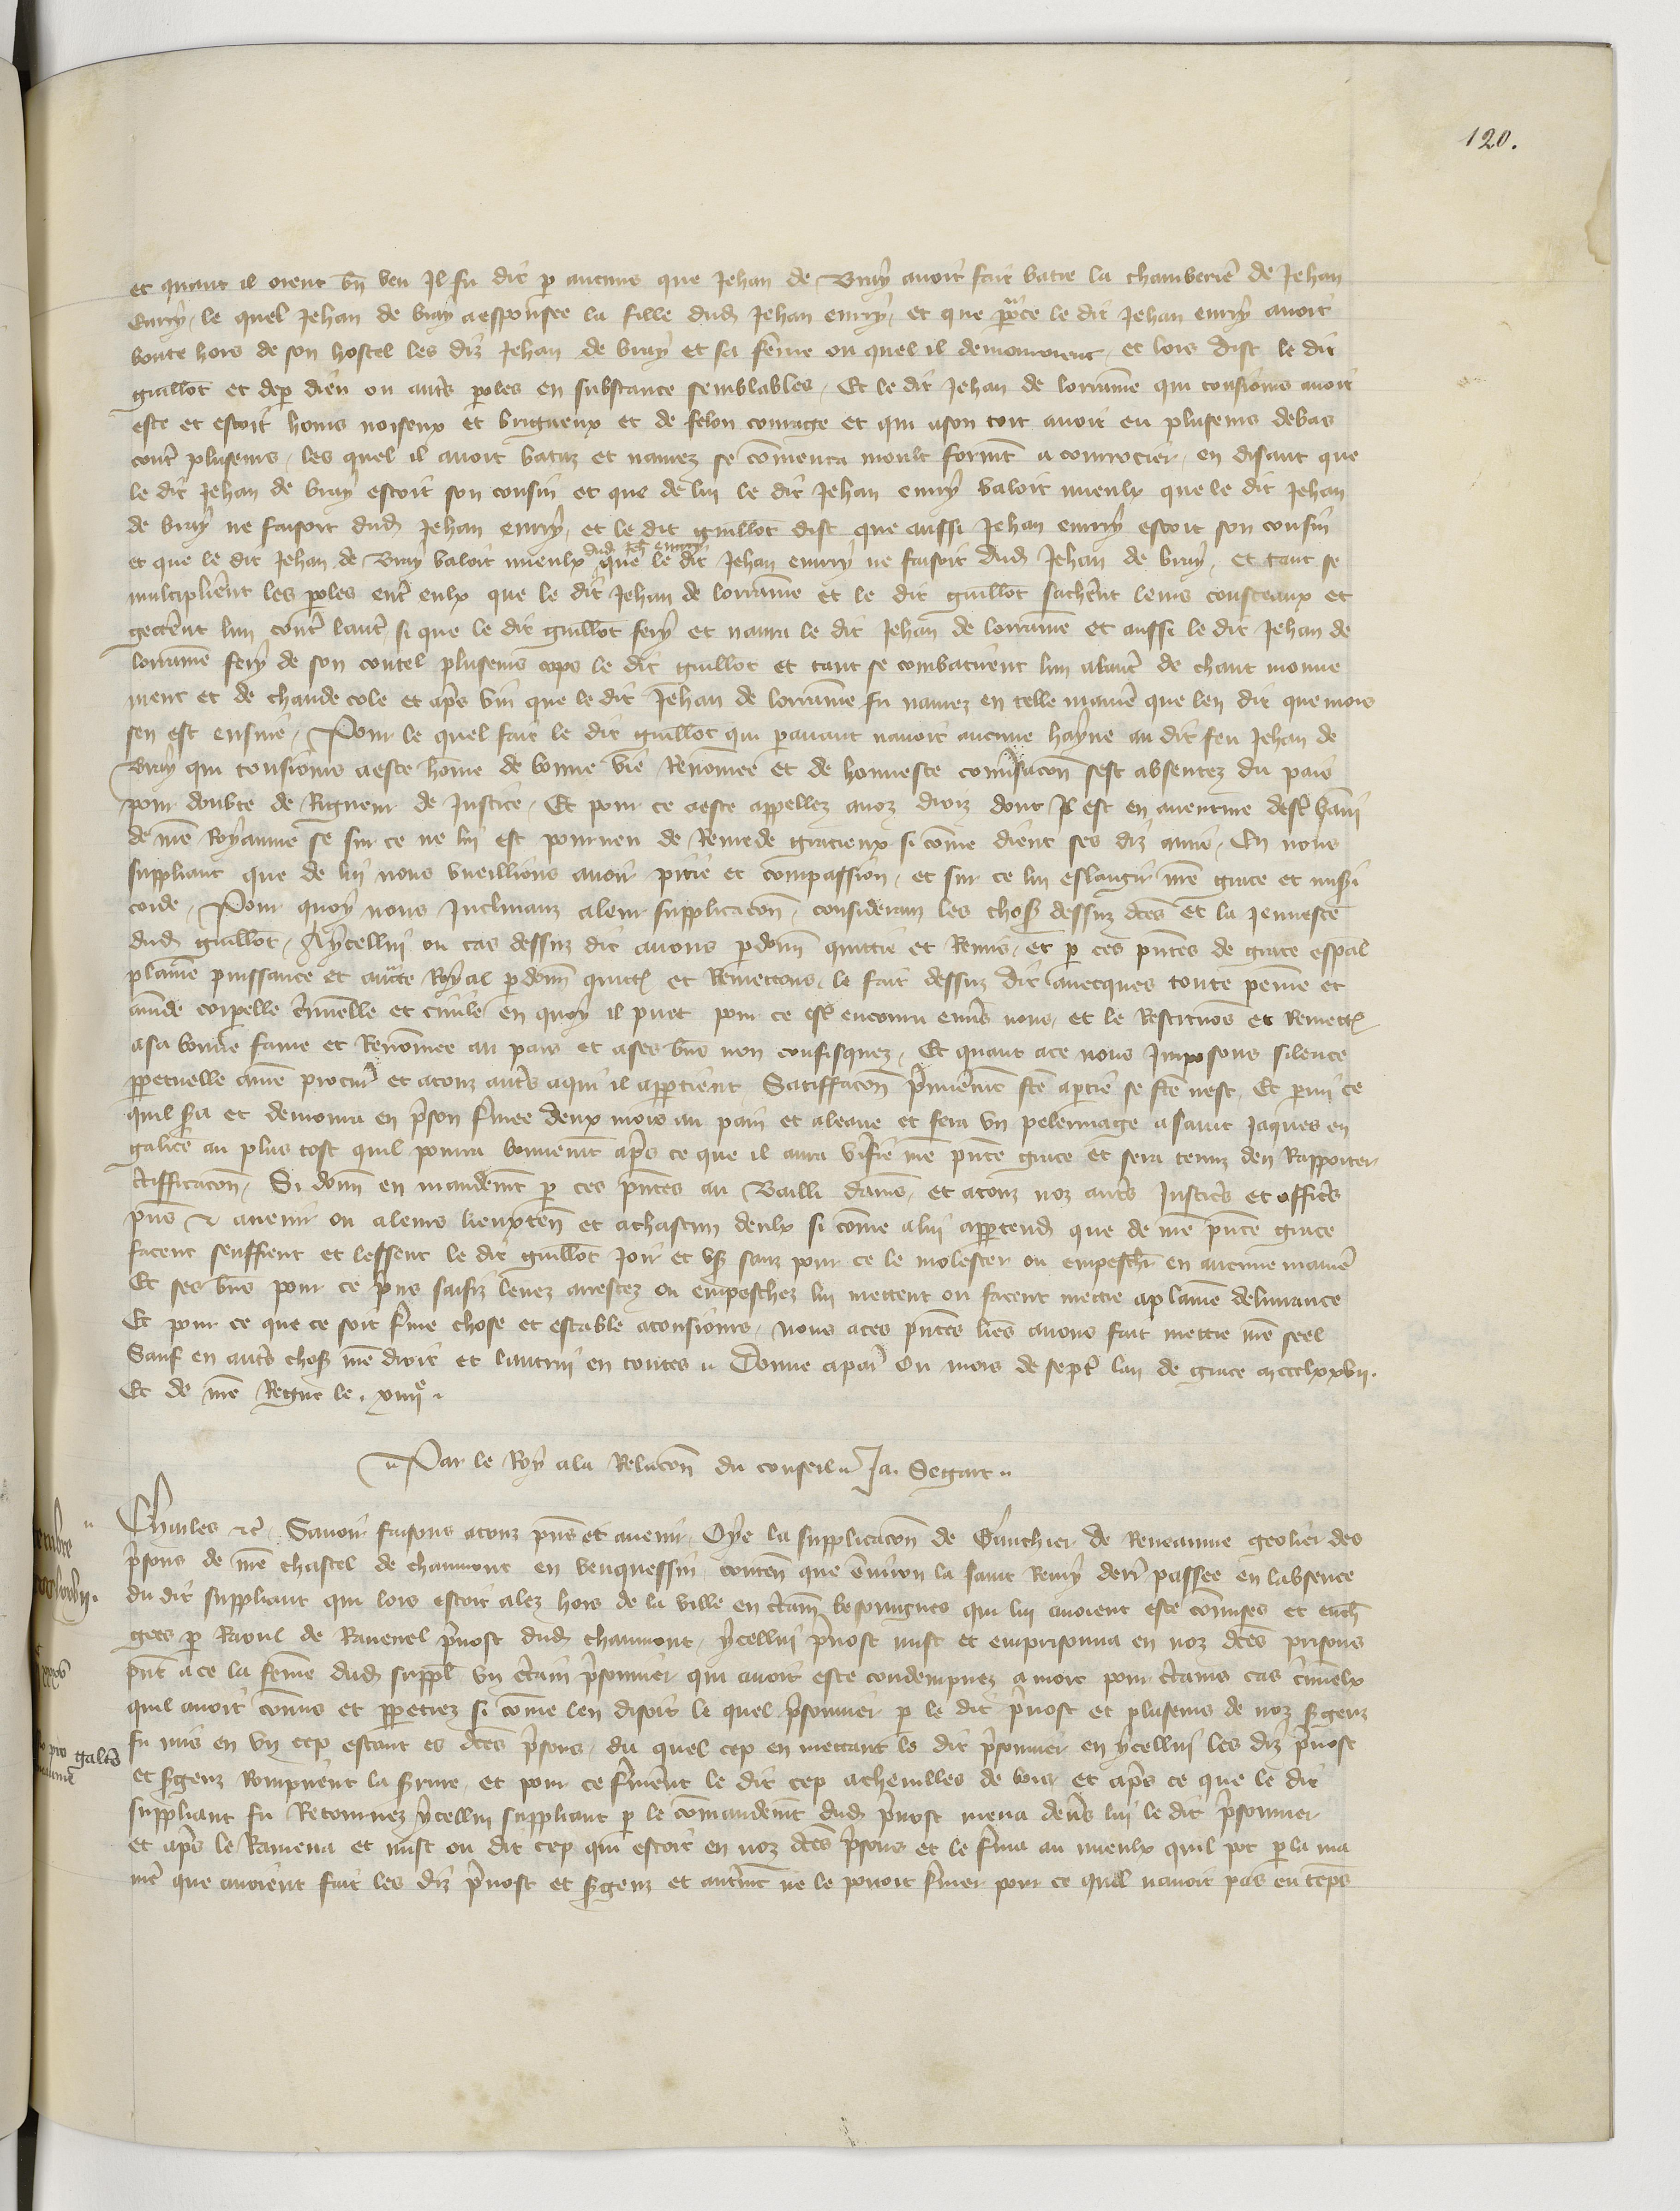 120.
et quant il orent bñ beu Il fu dit p aucuns que Jehan de Bray avoit fait batre la chamberiê de Jehan
Emry, le quel Jehan de bray a espousee la fille dud Jehan emry, et que por ce le dit Jehan emry avoit
boute hors de son hostel les diz Jehan de bray et sa feme ou quel il demouroient, et lors dist le dit
guillot et dep dieu ou auts poles en substance semblables, Et le dit Jehan de lorraine qui tousiours avoit
este et estoit homs noiseux et brigueux et de felon courage et qui a son tort avoit eu plusieurs debas
contr plusieurs, les quel il avoit batuz et navrez se comenca moult formt a courrocier, en disant que
le dit Jehan de bray estoit son cousin et que de lui le dit Jehan emry valoit mieulx que le dit Jehan
de bray ne faisoit dud Jehan emry, et le dit guillot dist que aussi Jehan emry estoit son cousin
dud Jeh emry
et que le dit Jehan de Bray valoit mieulx que le dit Jehan emry ne faisoit dud Jehan de bray, et tant se
multiplient les poles entr eulx que le dit Jehan de lorraine et le dit guillot sachrent leurs cousteaux et
gectrent lun contr lautr si que le dit guillot fery et navra le dit Jehan de lorraine et aussi le dit Jehan de
lorraine fery de son coutel plusieurs cops le dit guillot et tant se combatirent lun a lautr de chaut mouve
ment et de chaude cole et aps vin que le dit Jehan de lorraine fu navrez en telle maniê que len dit que mors
sen est ensuie, Pour le quel fait le dit guillot qui paravant navoit aucune hayne au dit feu Jehan de
Bray qui tousiours a este home de bonne vie Renomee et de honneste conversacon sest absentez du pais
pour doubte de Rigueur de Justice, Et pour ce a este appellez a noz droiz dont Il est en aventure destr bani
de nre Royaume se sur ce ne lui est pourveu de Remede gracieux si come dient ses diz amis, En nous
suppliant que de lui nous vueillions avoir pitie et compassion, et sur ce lui eslargir nre grace et misi
corde, Pour quoy nous Inclinanz a leur supplicacon, considerans les choses dessuz dces et la jeunesce
dud guillot, A ycellui ou cas dessuz dit avons pdonn quittie et Remis, et p ces pntes de grace espal
plaine puissance et aucte Royal pdonn quitt et Remettons, le fait dessuz dit avecques toute peine et
amde corpelle criminelle et civile en quoy il puet pour ce estr encouru envs nous, et le Restituons et Remett
a sa bonne fame et Renomee au pais et a ses bns non confisquez, Et quant a ce nous Imposons silence
ppetuelle a nre procur et a touz auts a qui il appartient, Satiffacon primrement fte a ptie se fte nest, Et parmi ce
quil sera et demourra en pson fmee deux mois au pain et a leaue et fera un pelerinage a saint Jaques en
galice au plus tost quil pourra bonnemt aps ce que il aura vifie nre pnte grace et sera tenuz den Rapporter
ctifficacon, Si donn en mandemt p ces pntes au Bailli damês, et a touz noz auts Justics et offics
pns & avenir ou a leurs lieuxten et a chascun deulx si come a lui appartend que de nre pnte grace
facent seuffrent et lessent le dit guillot Joir et user sanz pour ce le molester ou empeschr en aucune maniê
Et ses bns pour ce prins saisiz levez arrestez ou empeschez lui mettent ou facent mettre a plaine delivrance
Et pour ce que ce soit fme chose et estable a tousiours, nous a ces pntes lres avons fait mettre nre seel
Sauf en auts choses nre droit et lautrui en toutes, Donne a paris Ou mois de septr lan de grace mccclxxvii.
Et de nre Regne le .xiiiie.
Par le Roy a la Relacon du conseil Ja. Segart
Charles &c, Savoir faisons a touz pns et avenir, Oye la supplicacon de Gauthier de Reneaume geolier des
psons de nre chastel de chaumont en veuquessin contenn que environ la saint Remy derr passee en labsence
du dit suppliant qui lors estoit alez hors de la ville en ctaines besoingnes qui lui avoient este comises et ench
gees p Raoul de Ravenel pvost dud chaumont, ycellui pvost mist et emprisonna en noz dces prisons
pnt a ce la feme dud suppl un ctain psonnier qui avoit este condempnez a mort pour ctains cas crimielx
quil avoit comis et ppetrez si come len disoit le quel psonnier p le dit pvost et plusieurs de noz sergens
fu mis en un cep estant es dces psons, du quel cep en mettant le dit psonnier en ycellui les diz pvost
et sergenz Rompirent la serrure, et pour ce fmrent le dit cep a chevilles de bois et aps ce que le dit
suppliant fu Retournez ycellui suppliant p le comandemt dud pvost mena devs lui le dit psonnier
et aps le Ramena et mist ou dit cep qui estoit en noz dces psons et le fma au mieulx quil pot p la ma
niê que avoient fait les diz pvost et sergenz et autrmt ne le povoit fmer pour ce quil navoit pas eu temps